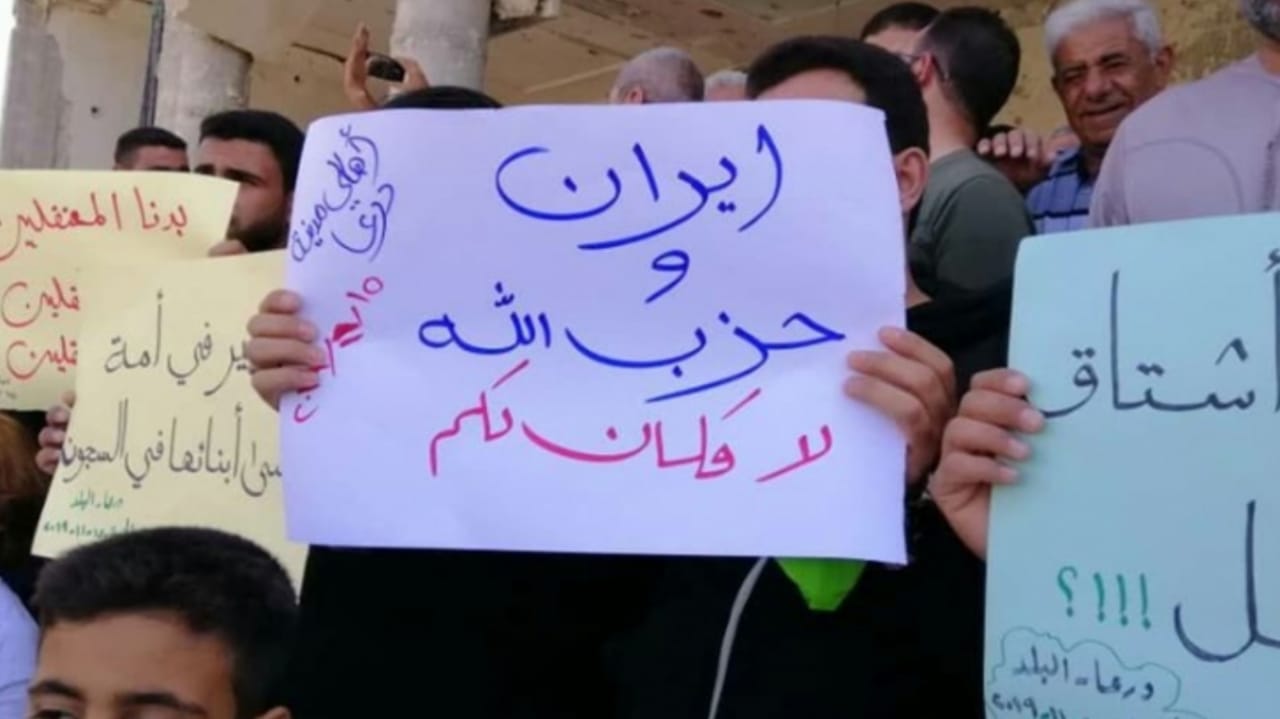 ايران
و
حزب الله
لا مكان لكم
أهالي مدينة
بدنا المعتقلين
قلين
قلين
ير في أمة
سى أبنائها في السجون
درعا - البلد
أشتاق
ل
!!!؟
درعا - البلد